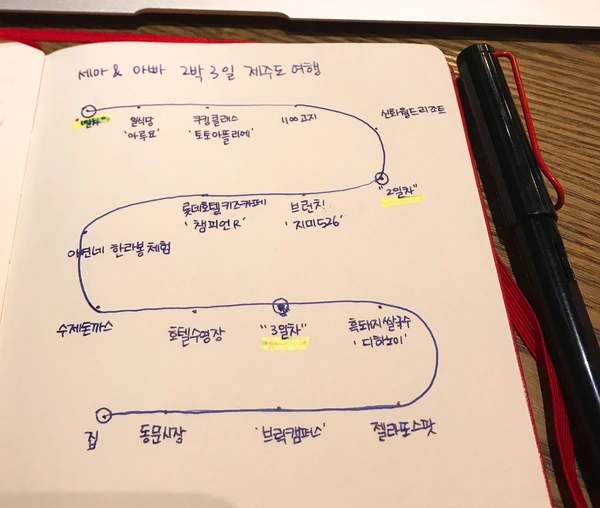 세아 & 아빠 2박 3일 제주도 여행
"1일차"
일식당
'아루요'
쿠킹클래스
'토토아뜰리에'
1100고지
신화월드리조트
"2일차"
브런치
'지미526'
롯데호텔키즈카페
'챔피언R'
아연네 한라봉체험
수제돈까스
호텔수영장
"3일차"
흑돼지쌀국수
'디하노이'
젤라또스팟
'브릭캠퍼스'
동문시장
집